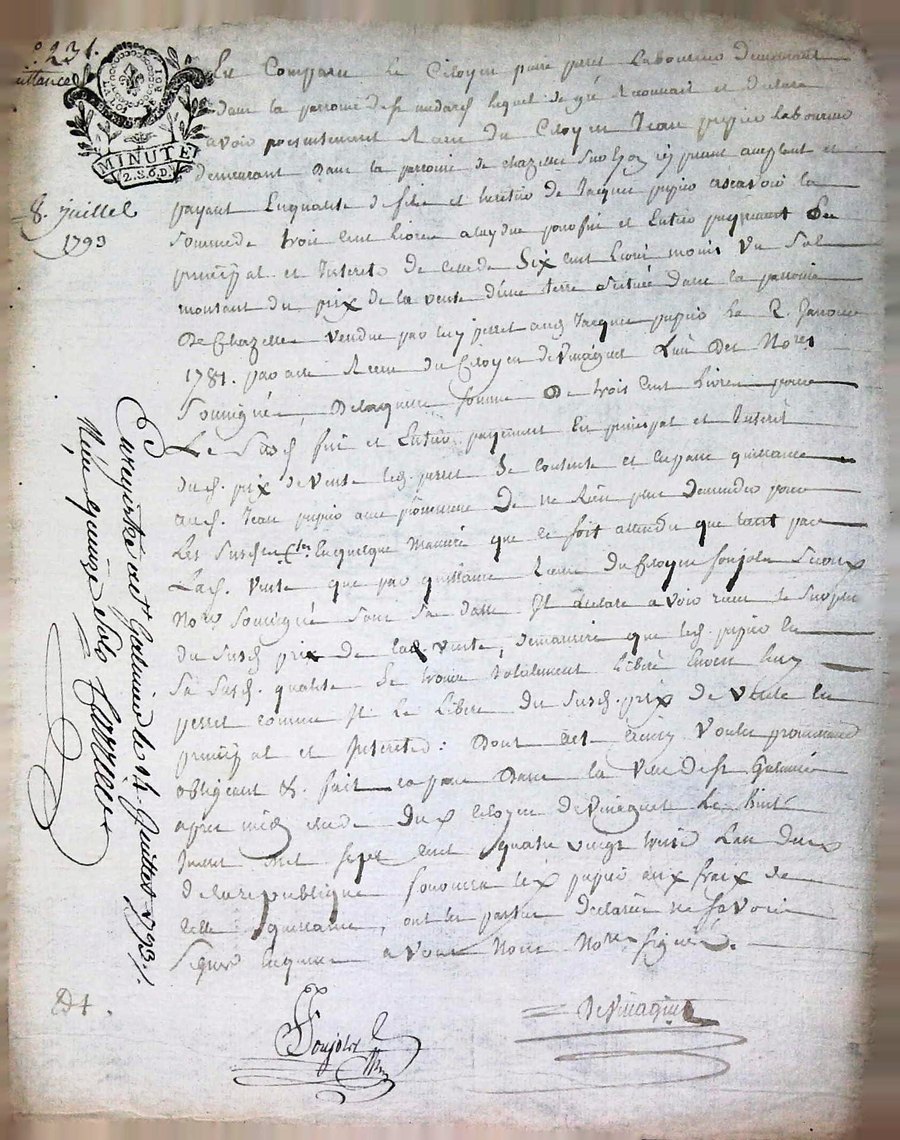 n.° 231.
quittance
MINUTE
2. S. 6. D.
8. juillet
1793
Est Comparu Le Citoyen pierre perret Laboureur demeurant
dans la parroisse de st medard lequel de gré Reconnait et declare
avoir presentement Receu du Citoyen Jean pupier laboureur
demeurant dans la parroisse de chazelles Sur lyon icy present acceptant et
payant En qualité de fils et heritier de Jacques pupier ascavoir la
somme de trois cent livres a luy due pour fin et Entier payement du
principal et Interets de celle de Six cent Livres moins Un Sol
montant du prix de la vente d'une terre Scituée dans la parroisse
De Chazelles vendue par luy perret aud. Jacques pupier Le 2. Janvier
1781. par acte Receu du Citoyen deVinaquet L'un Des No.res
Soussignés De laquelle somme De trois cent livres pour
Le Susd. fin et Entier payement En principal et Interet
dud. prix de Vente led. perret Se contente et En passe quittance
aud. Jean pupier avec promesse De ne Rien plus demander pour
Les Susd. En quelque Maniere que ce soit attendu que tant par
Lad. Vente que par quittance Receue du Citoyen Soujolx
No.re Soussigné sous Sa datte Il declare avoir receu le Surplus
du Susd. prix de lad. vente, de maniere que led. pupier En
Sa Susd. qualité Se trouve totalement Libéré Envers luy
perret comme Il Le Libere du Susd. prix de Vente En
principal et Interets: Dont acte ainsy Voulu promettant
obligeant &. fait et passé Dans la Ville de st Galmier
apres midy etude Du d. citoyen DeVinaquet Le huit
Juillet mil sept cent quatre vingt treize L'an deux
de la republique Soumettra led. pupier aux fraix de
cette quittance, ont les parties declarés ne sçavoir
signer Enquis avons Nous No.res signés.
Soujolx
No.re
deVinaquet
Enregistré a st Galmier le 14. Juillet 1793./.
Reçu quinze sols